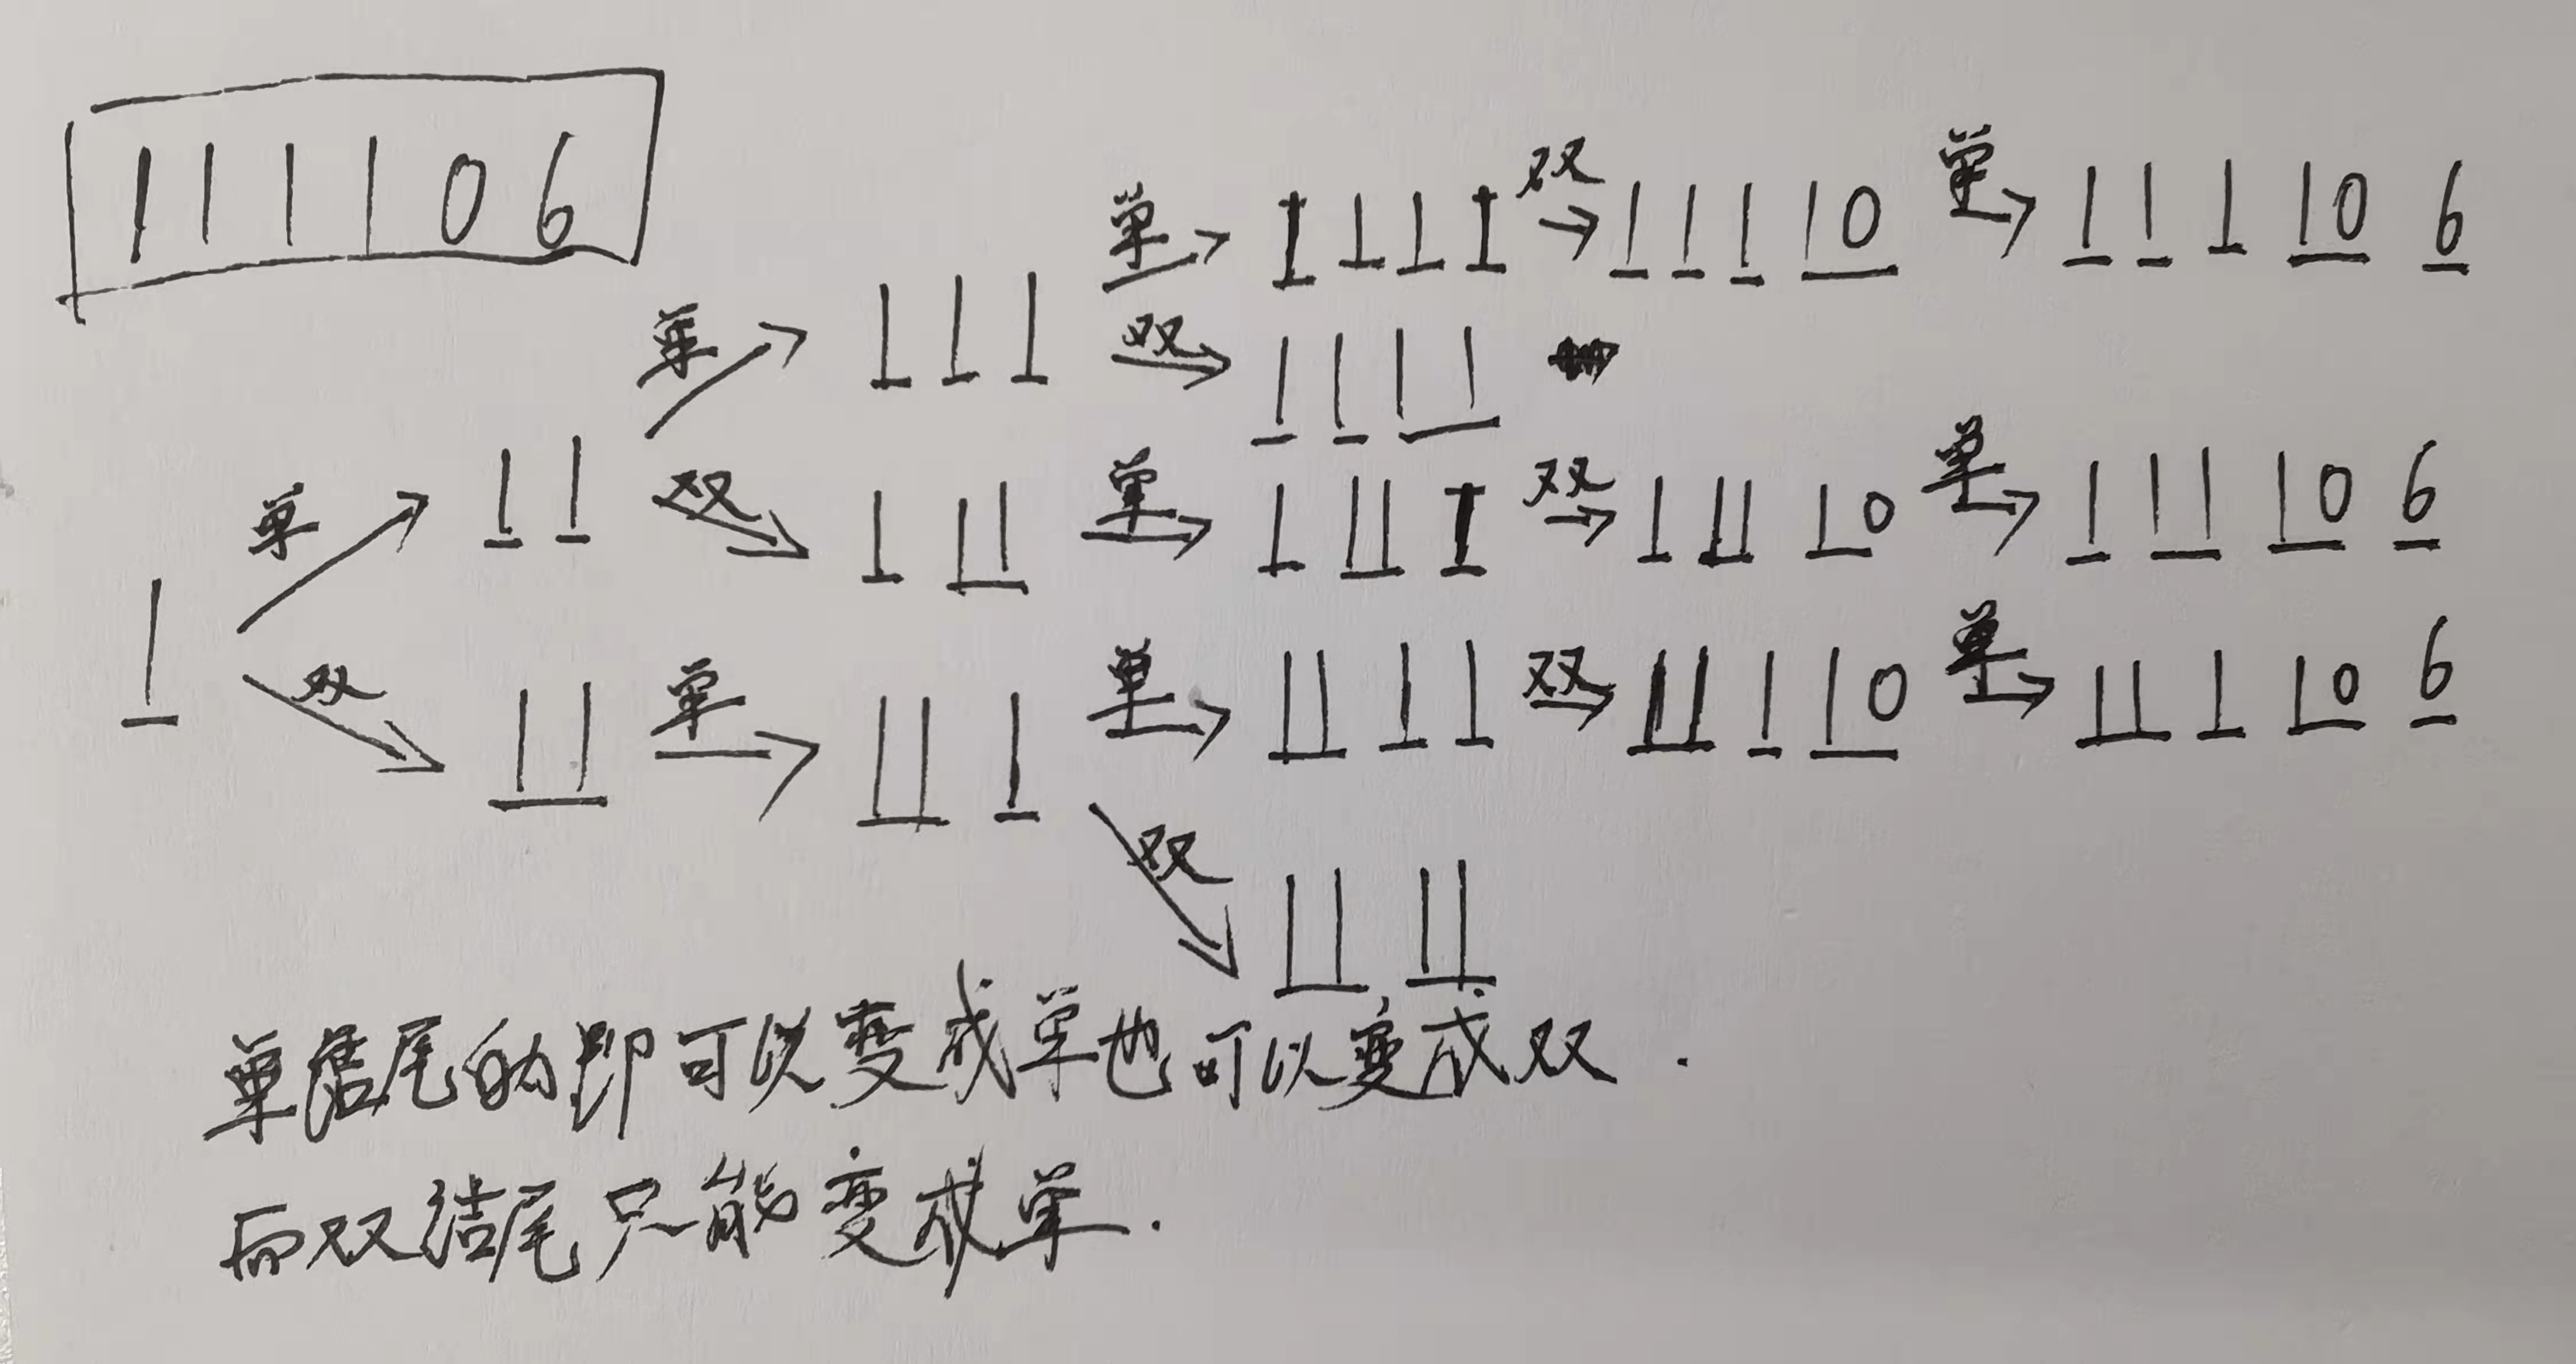 111106
单 1111 双 11110 单 111106
单 111 双 1111
单 11 双 111 单 1111 双 11110 单 111106
1
双 11 单 111 单 1111 双 11110 单 111106
双 1111
单结尾的即可以变成单也可以变成双.
而双结尾只能变成单.